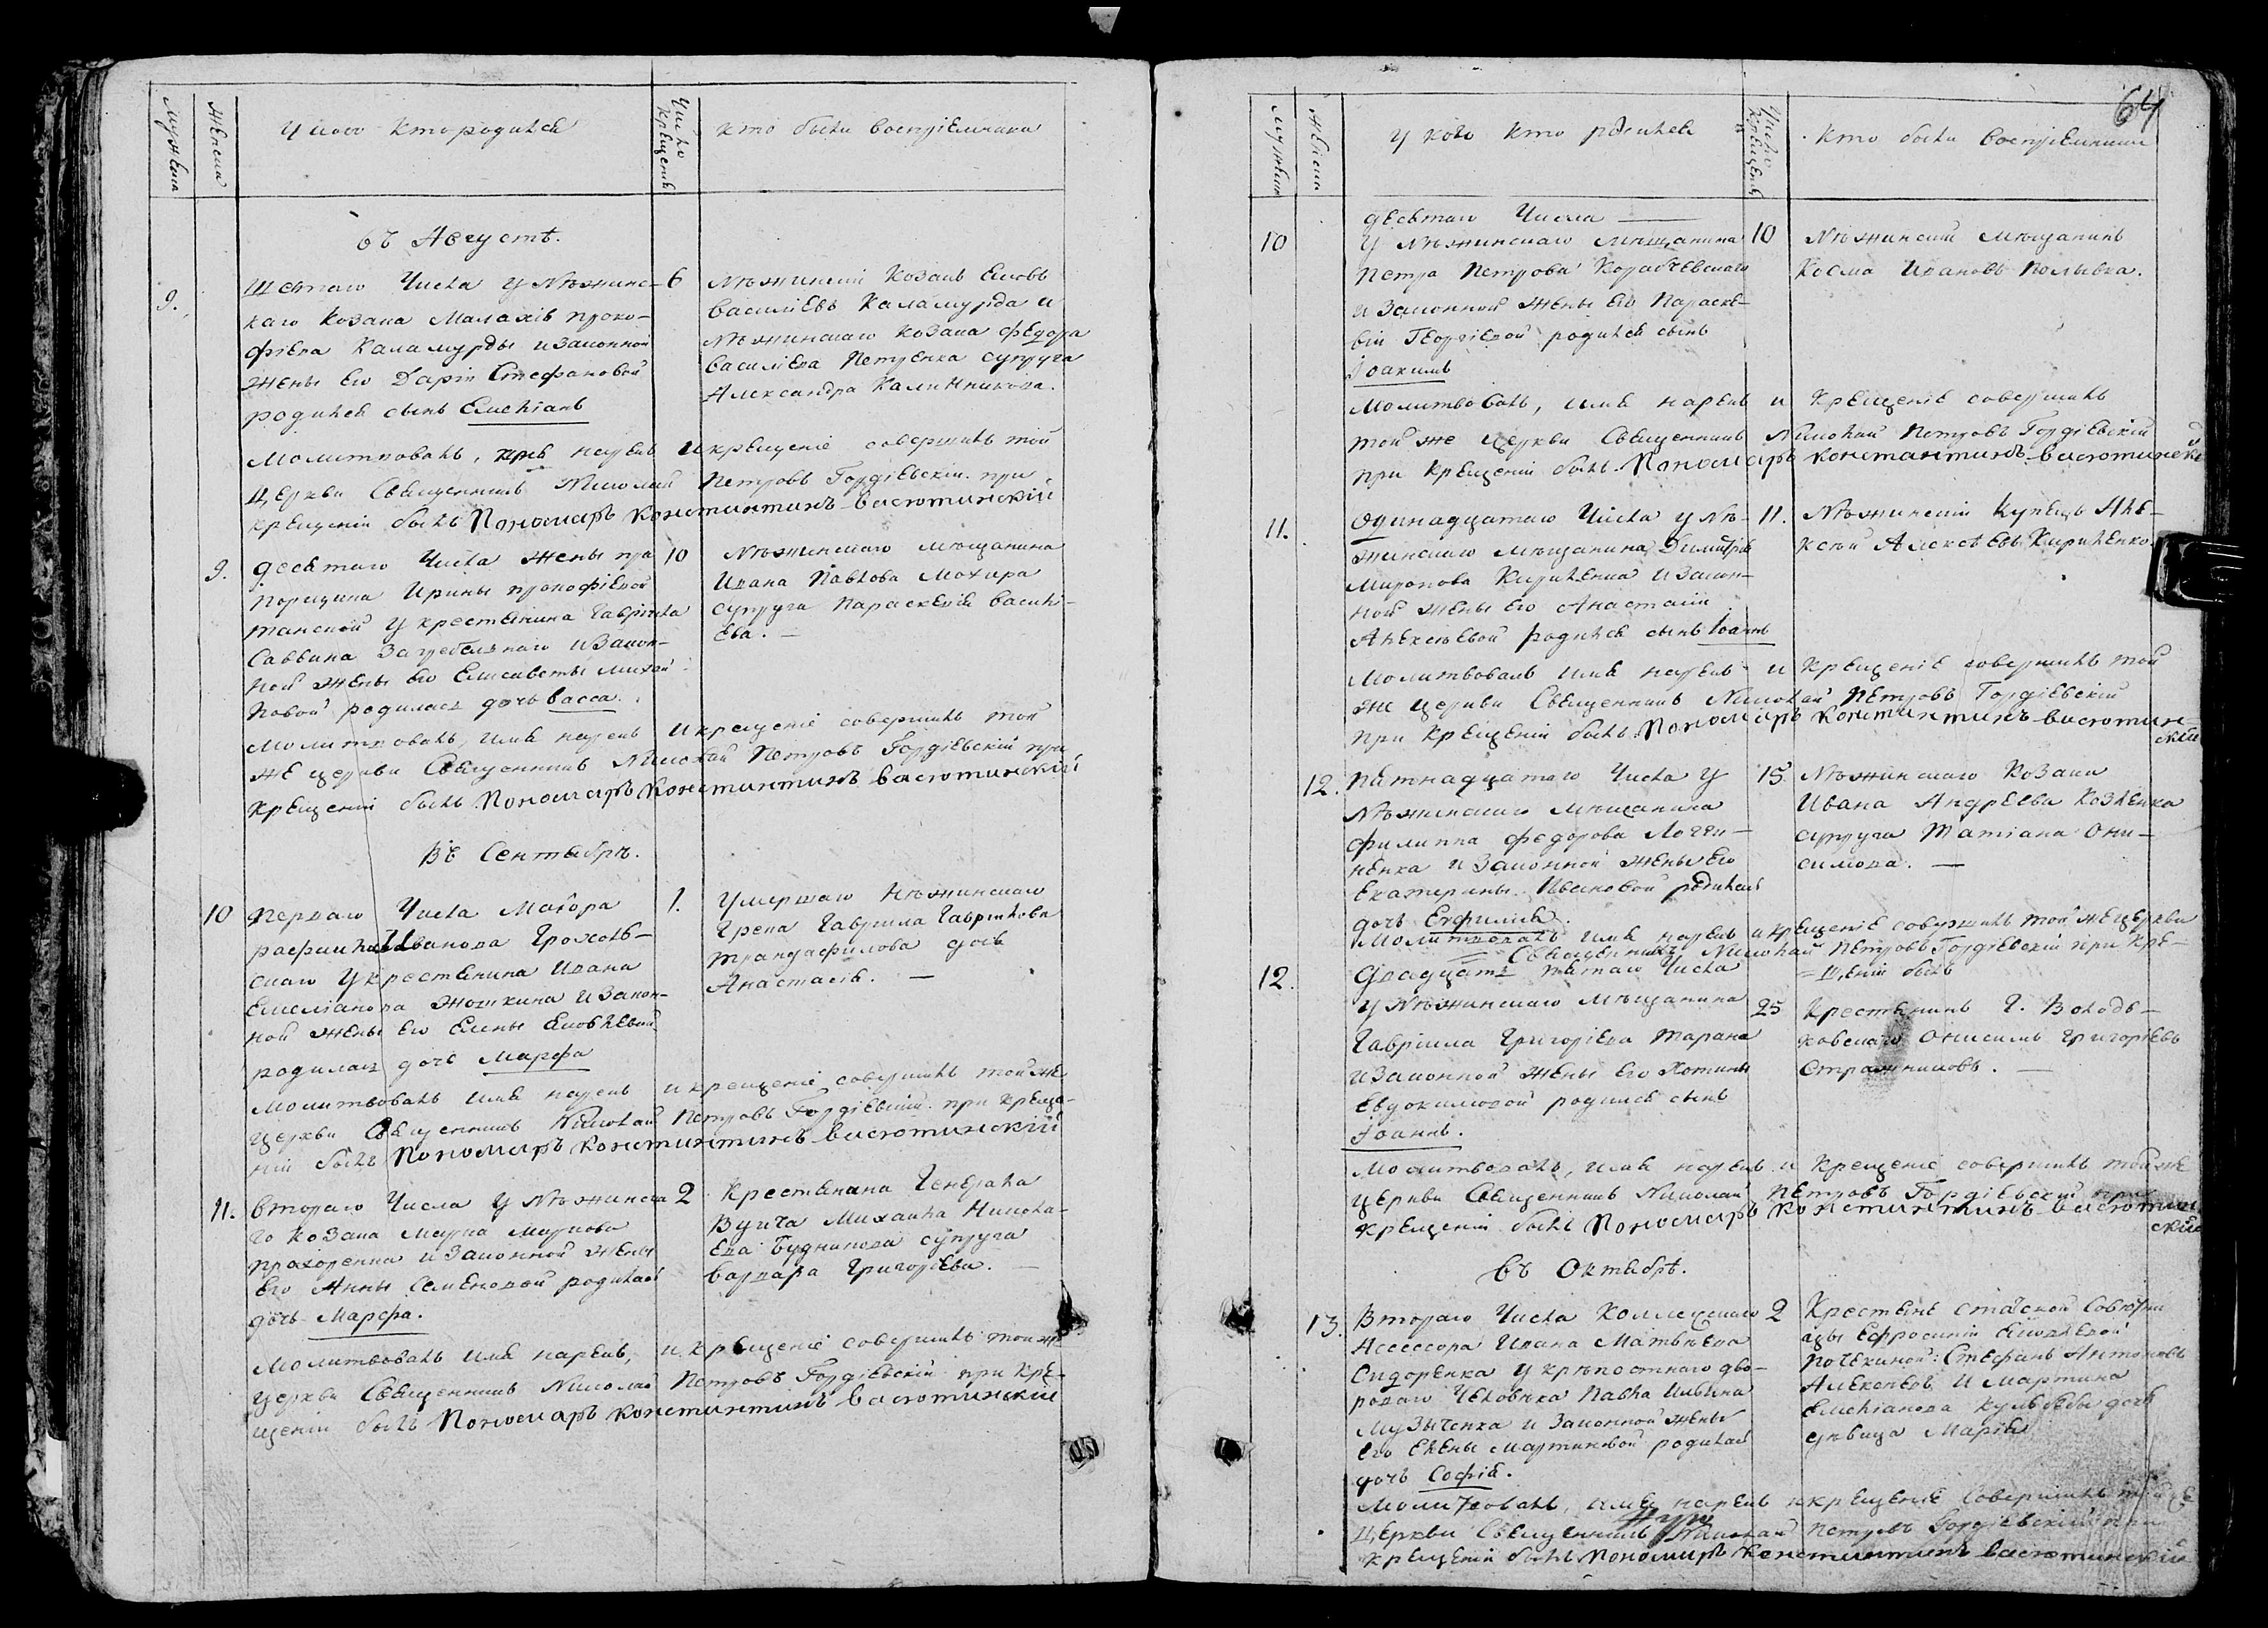 Мужеска
Женска
У кого кто родился
Число крещенія
кто были воспріемники
въ Августѣ.
9.
Шестаго Числа у Нѣжинс-
каго козака Малахія Проко-
фіева Каламурды и законной
жены его Даріи Стефановой
родился сынъ Емеліанъ
6
Нѣжинскій козакъ
Василіевъ Каламурда и
Нѣжинскаго козака Федора
Василіева Петренка супруга
Александра
Молитвовалъ, имя нареклъ и крещеніе совершилъ той
Церкви Священникъ Николай Петровъ Гордіевскій при
крещеніи былъ Пономаръ Константинъ Васютинскій
9.
десятаго Числа жены пра
порщика Ирины Прокофіевой
у крестьянина Гавріила
Саввина и закон-
ной жены его Елисаветы
родилась дочь Васса.
10
Нѣжинскаго мѣщанина
Ивана Павлова
супруга Параскевія Василі-
ева. —
Молитвовалъ, имя нареклъ и крещеніе совершилъ той
же церкви Священникъ Николай Петровъ Гордіевскій при
крещеніи былъ Пономаръ Константинъ Васютинскій
Въ Сентябрѣ.
10
перваго Числа Маіора
Рафаила Иванова Грохоль-
скаго у крестьянина Ивана
Емеліанова и закон-
ной жены его Елены
родилась дочь Марфа
1.
Умершаго Нѣжинскаго
Грека Гавріила Гаврилова
Трандафилова дочь
Анастасія. —
Молитвовалъ имя нареклъ и крещеніе совершилъ той же
церкви Священникъ Николай Петровъ Гордіевскій при креще-
ніи былъ Пономаръ Константинъ Васютинскій
11.
втораго Числа у Нѣжинска
го козака Марка Маркова
Прахоренка и законной жены
его Анны Семеновой родилась
дочь Марфа.
2
Крестьянина Генерала
Вуича Михаила Никола-
ева Будникова супруга
Варвара Григоріева. —
Молитвовалъ имя нареклъ, и крещеніе совершилъ той же
церкви Священникъ Николай Петровъ Гордіевскій при кре-
щеніи былъ Пономаръ Константинъ Васютинскій
64
Мужеска
Женска
У кого кто родился
Число крещенія
Кто были воспріемники
10
десятаго Числа —
У Нѣжинскаго мѣщанина
Петра Петрова Корабчевскаго
и законной жены его Параске-
віи Георгіевой родился сынъ
Іоакимъ
10
Нѣжинскій мѣщанинъ
Косма Ивановъ
Молитвовалъ, имя нареклъ и крещеніе совершилъ
той же церкви Священникъ Николай Петровъ Гордіевскій
при крещеніи былъ Пономаръ Константинъ Васютинскій
11.
Одинадцатаго Числа у Нѣ-
жинскаго мѣщанина Димитрія
Миронова Кириленка и закон-
ной жены его Анастасіи
Алексѣевой родился сынъ Іоаннъ
11.
Нѣжинскій купецъ Але-
ксѣй Алексѣевъ Кириленко.
Молитвовалъ имя нареклъ и крещеніе совершилъ той
же церкви Священникъ Николай Петровъ Гордіевскій
при крещеніи былъ Пономаръ Константинъ Васютин-
скій
12.
Пятнадцатаго Числа у
Нѣжинскаго мѣщанина
Филиппа Федорова Логви-
ненка и законной жены его
Екатерины Ивановой родилась
дочь Евфимія.
15.
Нѣжинскаго козака
Ивана Андреева Козленка
супруга Татіана Они-
симова. —
Молитвовалъ имя нареклъ и крещеніе совершилъ той же церкви
Священникъ Николай Петровъ Гордіевскій при кре-
щеніи былъ
12.
Двадцать пятаго Числа
у Нѣжинскаго мѣщанина
Гавріила Григоріева Тарана
и законной жены его Фотины
Евдокимовой родился сынъ
Іоаннъ.
25
Крестьянинъ Г. Володь-
ковскаго Онисимъ Григоріевъ
Стражниковъ. —
Молитвовалъ, имя нареклъ и крещеніе совершилъ той же
церкви Священникъ Николай Петровъ Гордіевскій при
крещеніи былъ Пономаръ Константинъ Васютин
скій
въ Октябрѣ.
13.
Втораго Числа Коллежскаго
Ассесора Ивана Матвѣева
Сидоренка у крѣпостнаго дво-
роваго человѣка Павла Ильина
Музыченка и законной жены
его Елены Мартиновой родилась
дочь Софія.
2
Крестьяне статской Совѣтни
цы Ефросиніи Яковлевой
Почекиной: Стефанъ Антоновъ
Алексеевъ и Мартина
Емеліанова дочь
дѣвица Марія
Молитвовалъ, имя нареклъ и крещеніе совершилъ той же
Церкви Священникъ Николай Петровъ Гордіевскій при
крещеніи былъ Пономаръ Константинъ Васютинскій